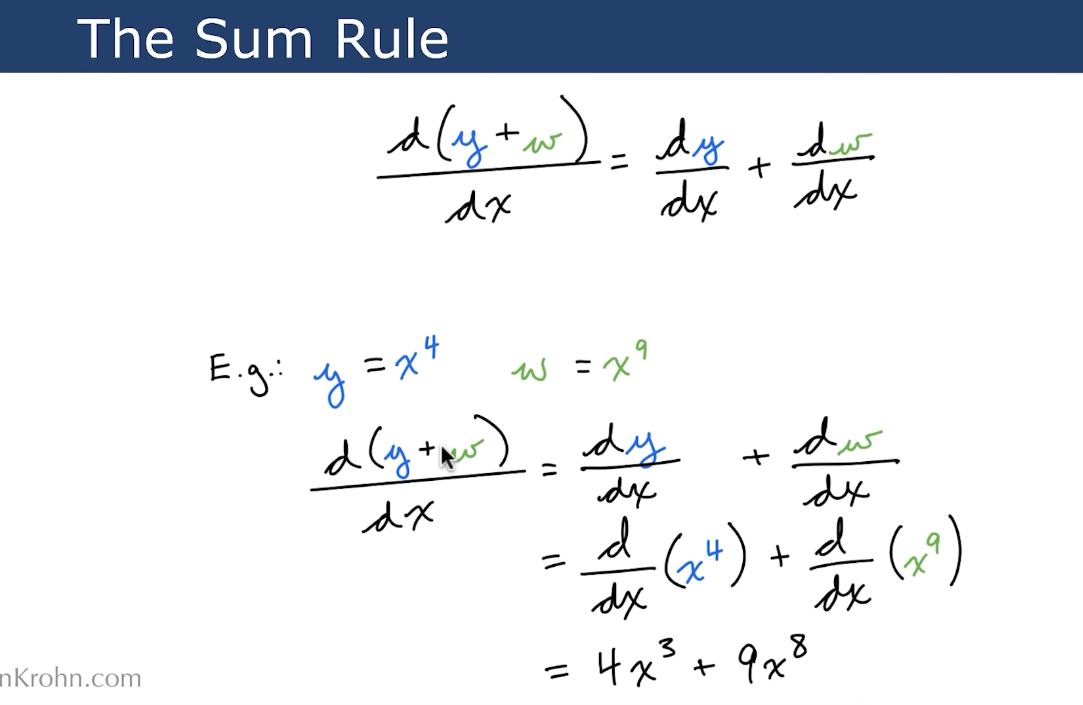 The Sum Rule
d(y + w)/dx = dy/dx + dw/dx
E.g.: y = x⁴ w = x⁹
d(y + w)/dx = dy/dx + dw/dx
= d/dx (x⁴) + d/dx (x⁹)
= 4x³ + 9x⁸
nKrohn.com